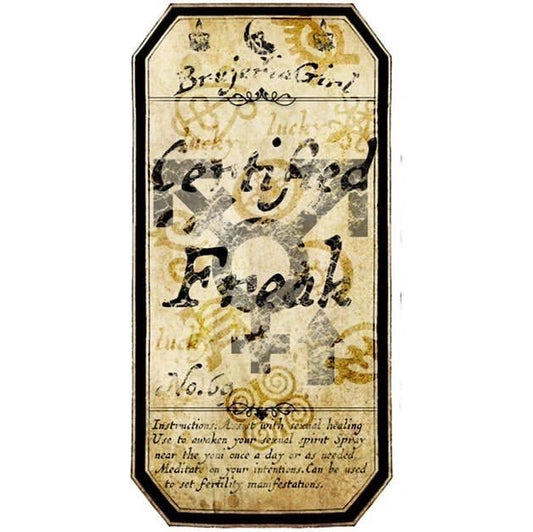 BrujeriaGirl
lucky
lucky
Certified
Freak
luck
No.69
Instructions: Assist with sexual healing
Use to awaken your sexual spirit Spray
near the yoni once a day or as needed
Meditate on your intentions. Can be used
to set fertility manifestations.